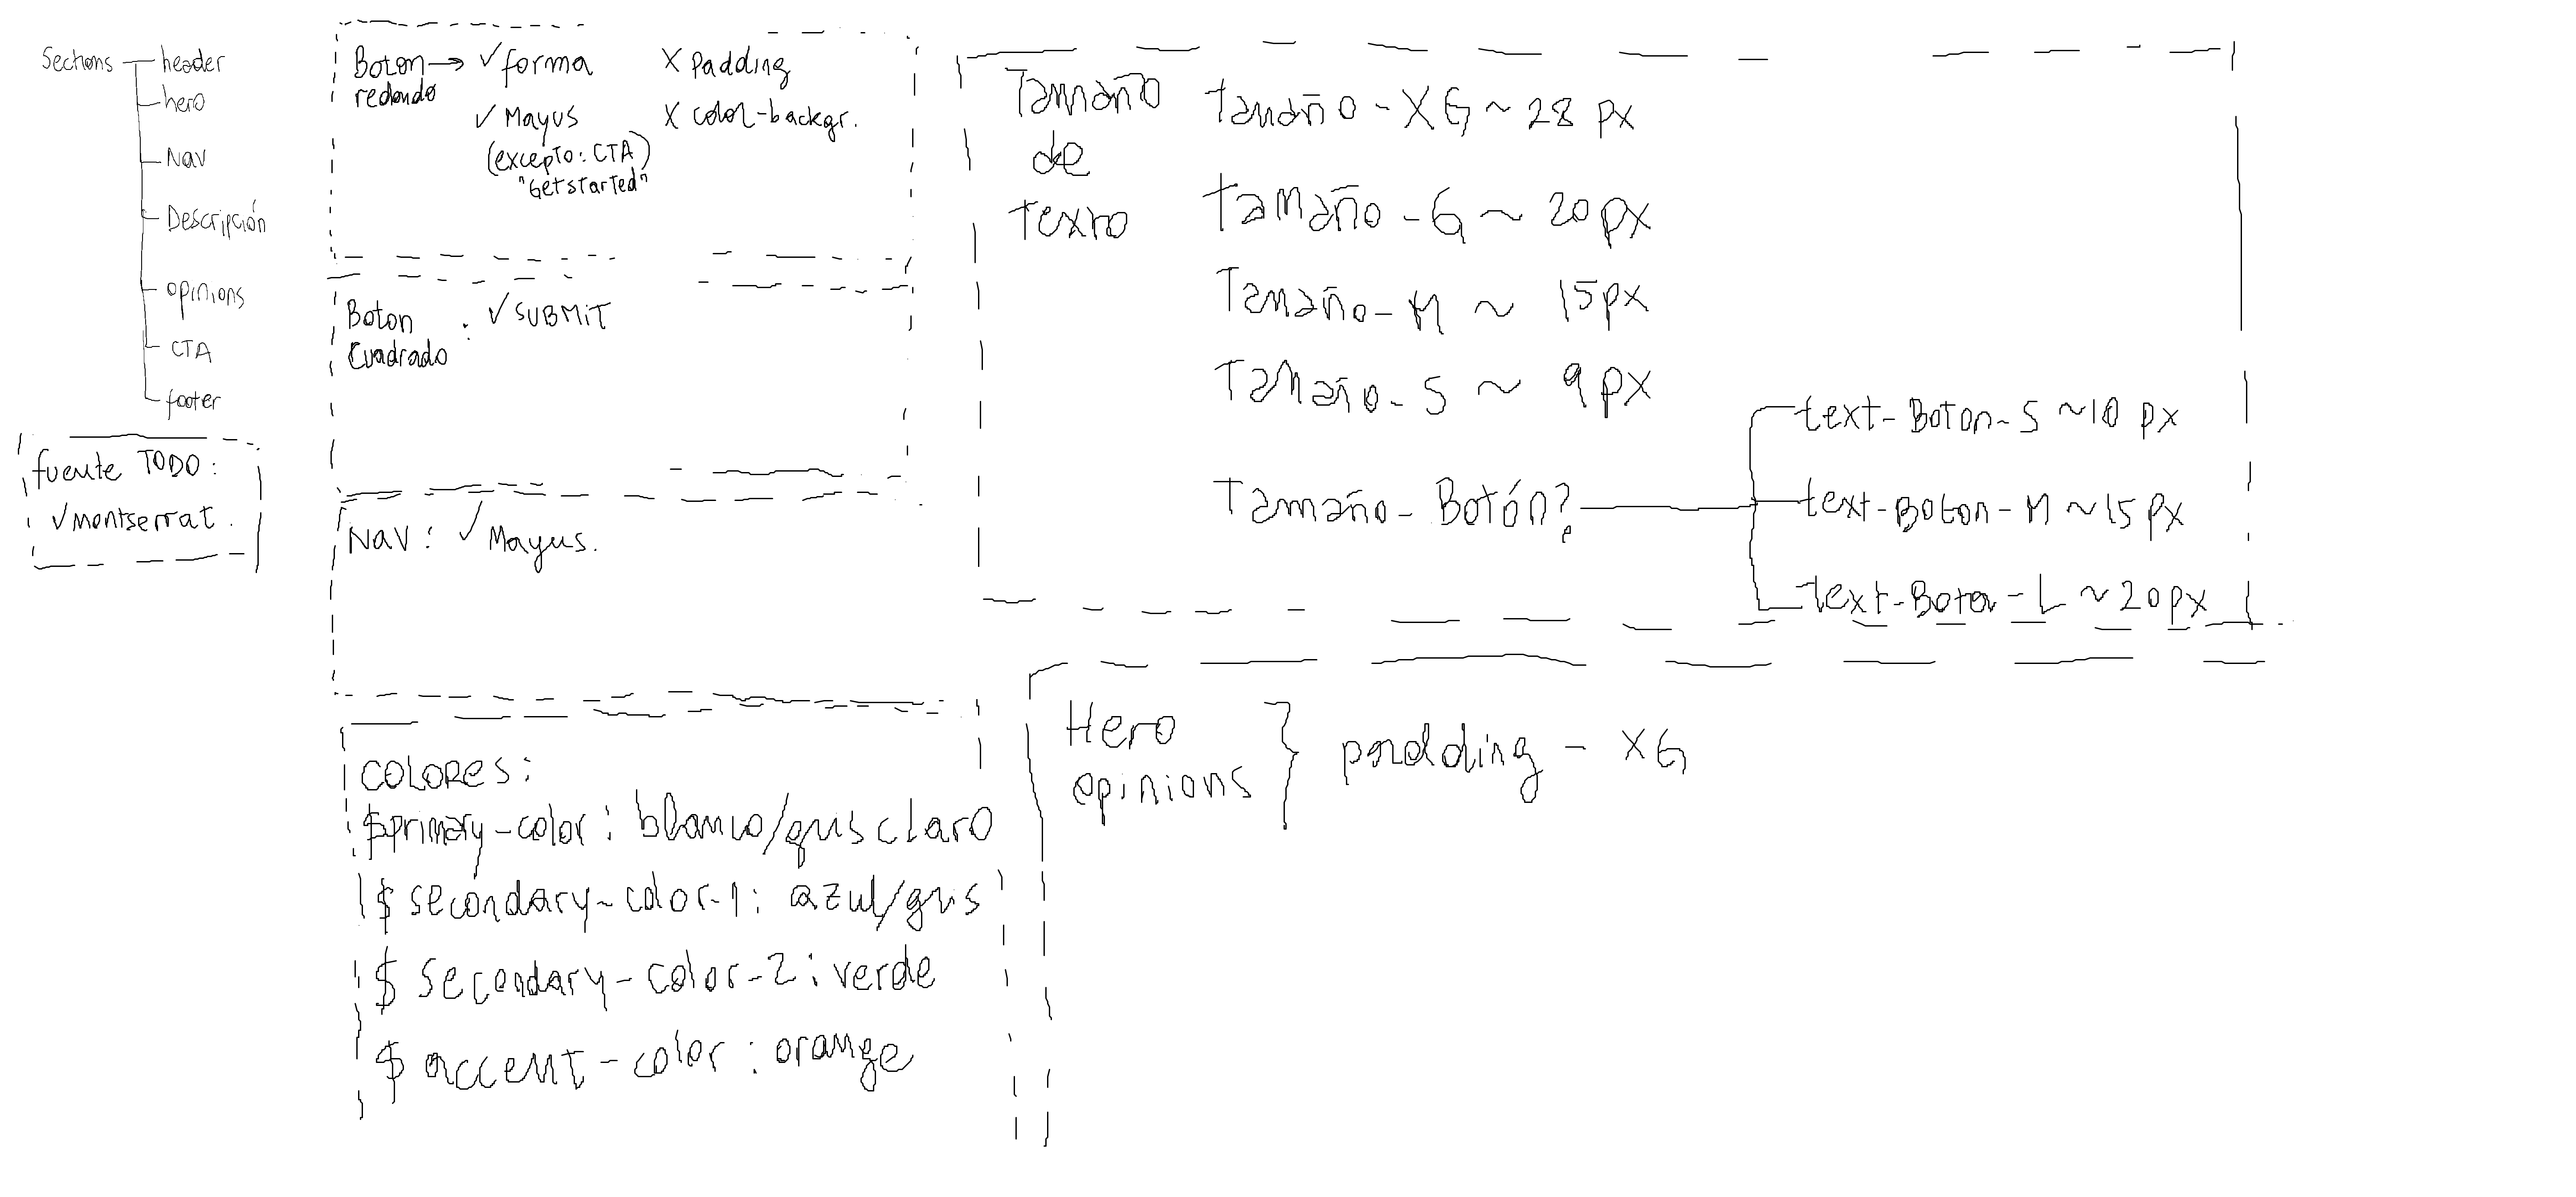 Sections
header
hero
Nav
Descripción
opinions
CTA
footer
fuente TODO:
✓montserrat.
Boton → ✓forma X padding
redondo
✓Mayus X color-backgr.
(excepto: CTA)
"Get started"
Boton : ✓SUBMIT
Cuadrado
Nav: ✓Mayus.
COLORES:
$primary-color: blanco/gris claro
$secondary-color-1: azul/gris
$secondary-color-2: verde
$accent-color: orange
Tamaño
de
Texto
Tamaño-XG ~ 28 px
Tamaño-G ~ 20px
Tamaño-M ~ 15px
Tamaño-S ~ 9px
Tamaño-Botón?
text-Boton-S ~10 px
text-Boton-M ~15 px
text-Boton-L ~20px
Hero
opinions
padding - XG